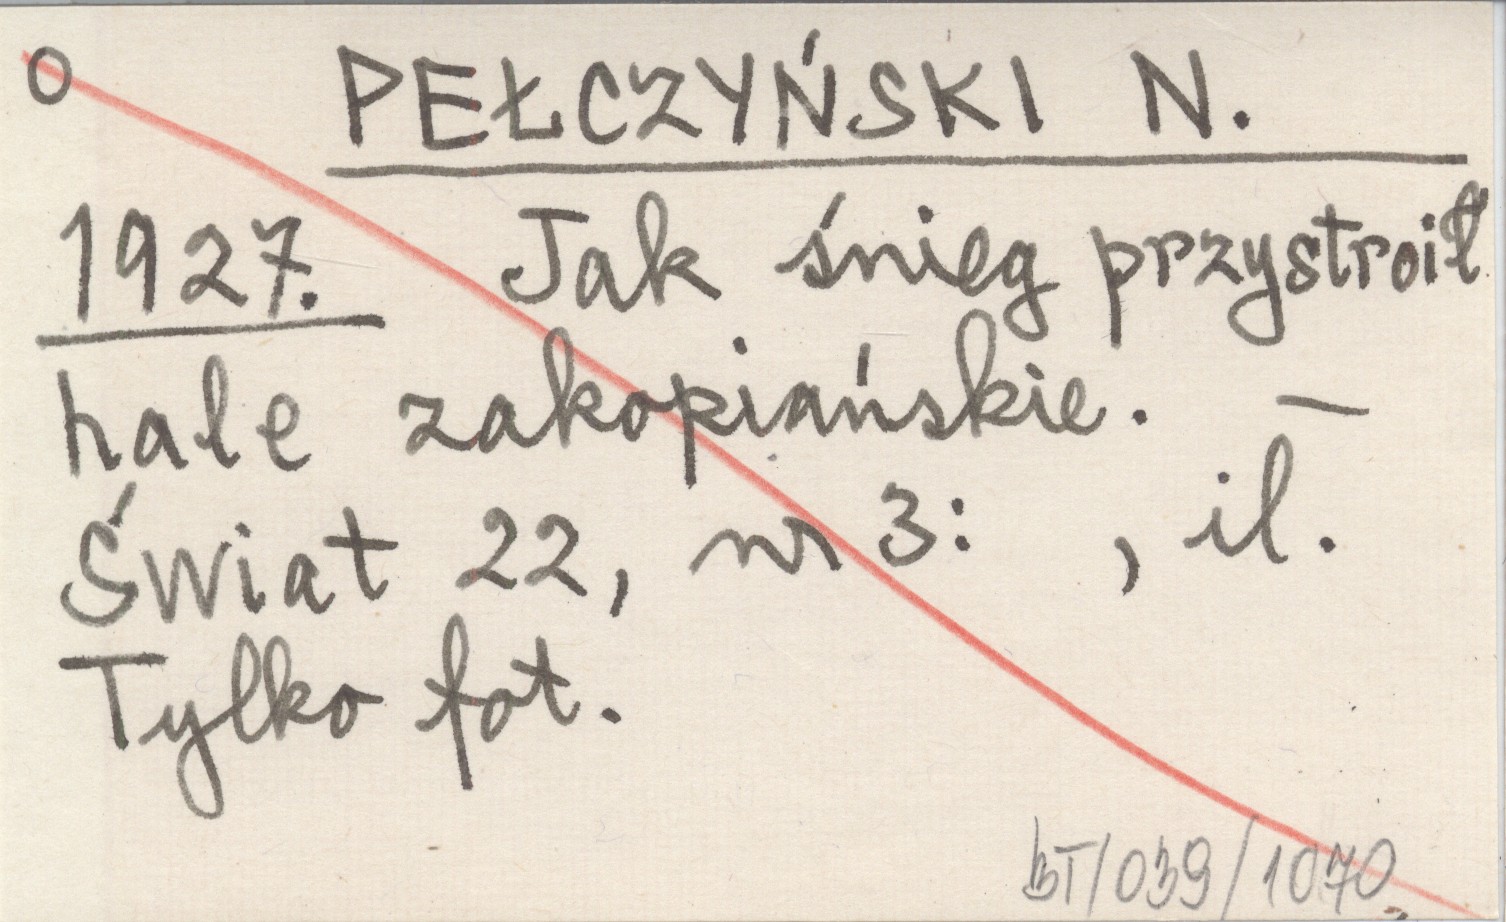 O
PEŁCZYŃSKI N.
1927. Jak śnieg przystroił
hale zakopiańskie. —
Świat 22, nr 3: , il.
Tylko fot.
BT/039/1070